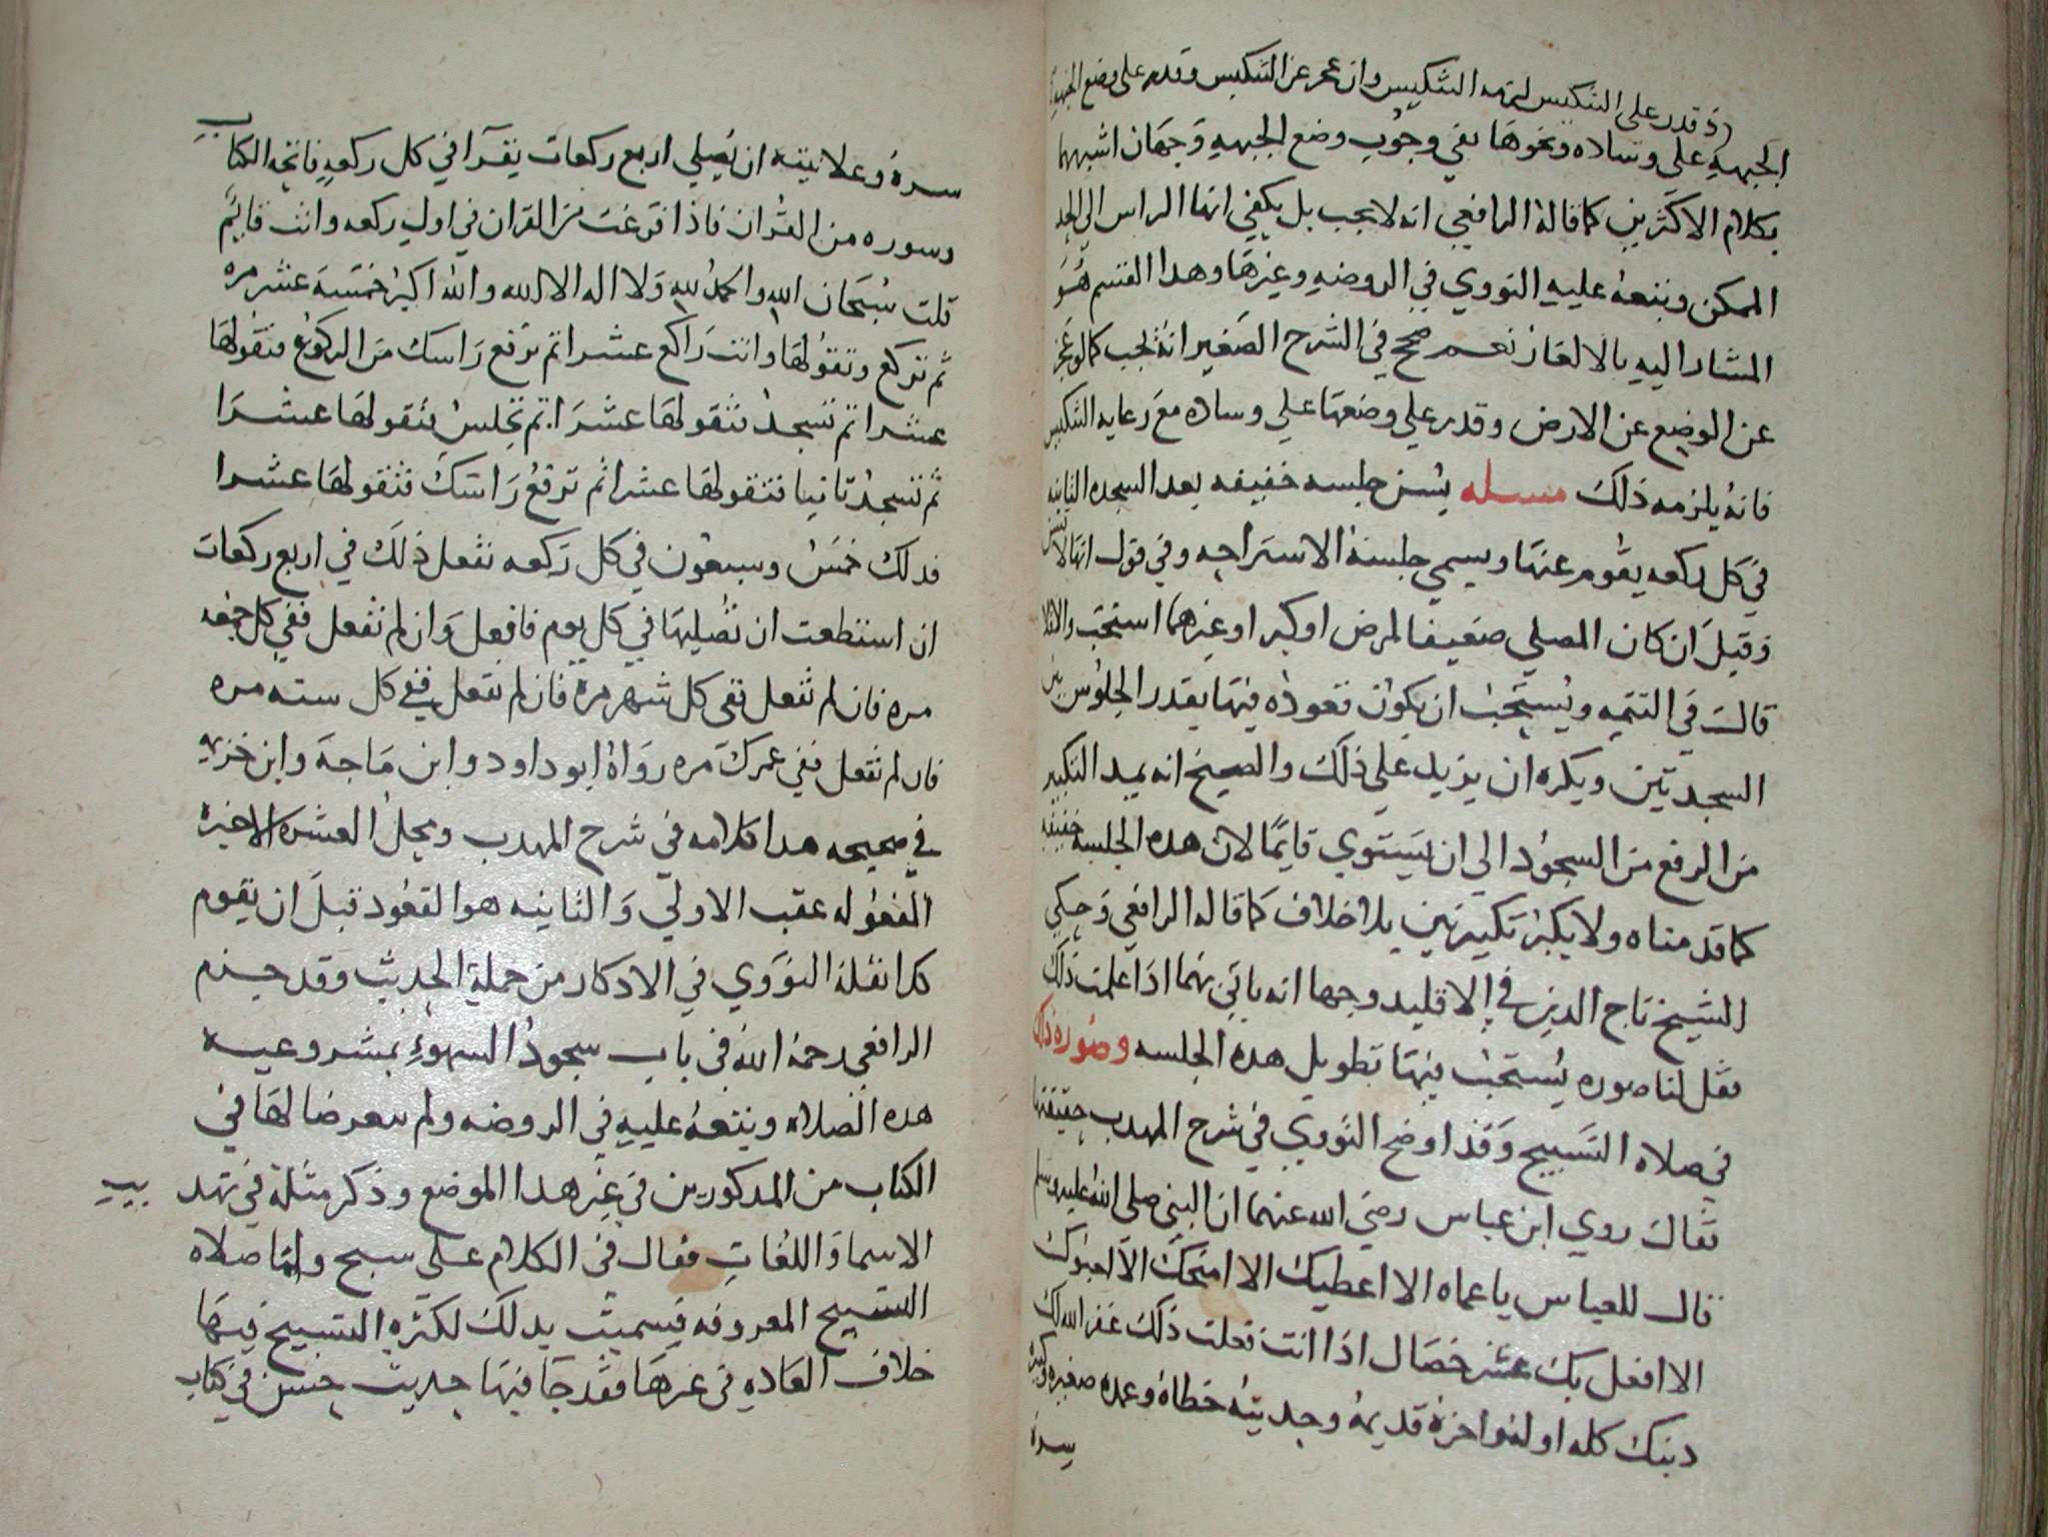 اذ قدر على التنكيس لزمه التنكيس وان عجز عن التنكيس وقدر على وضع الجبهه
الجبهةِ على وساده ونحوها ففي وجُوب وضع الجبههِ وَجهَان اشبههما
بكلام الاكثرين كما قالهُ الرافعي انه لا يجب بل يكفي انها الراس الى الحد
الممكن وتبعهُ عليهِ النووي في الروضهِ وغيرهَا وهدا القسم هُوَ
المشار اليهِ بالالغاز نعم صحح في الشرح الصَغير انهُ يجب كما لو عجز
عن الوضع عن الارض وقدر على وضعهَا على وساده معَ رعايه التنكيس
فانهُ يلزمه ذلكَ مسله يُسن جلسه خفيفه بعد السجده الثانيه
في كل ركعه يقُوم عنهَا ويسمي جلسة الاستراحه وفي قول انها لا تسن
وَقيلَ ان كان المصلي ضعيفا لمرض اوكبر اوغيرهما استحب والا فلا
قالَ في التتمه ويُستحَبُ ان يكوُن قعودُه فيهَا بقدر الجلوُس بين
السجدتين ويكره ان يزيد على ذلكَ والصحيح انه يمد التكبير
مَن الرفع مَن السجوُد الي ان يَستوي قايمًا لان هده الجلسه خفيفه
كما قدمناه ولا يكبرُ تكبيرتين بلا خلاف كما قاله الرافعي وَحكي
الشيخ تاج الدين في الاقليد وجها انه ياتي بهما اذا علمت ذلكَ
فقل لنا صوره يُستحَبُ فيهَا تطويل هده الجلسه وصُوره ذلك
في صلاه التسَبيح وَقد اوضح النووي في شرح المهدب حقيقتها
فقالَ روي ابن عباس رضي الله عنهما ان النبي صلى الله عليه وسلم
قال للعباس ياعماه الا اعطيك الا امنحكَ الا احبوُك
الا افعل بكَ عشر خصَال اذا انتَ فعلت ذلكَ غفر الله لك
دنبك كله اوله واخرهُ قديمهُ وحديثهُ خطاهُ وعمده صغيره وكبيره
سرهُ
سرهُ وعلانيته ان تُصلي اربع ركعات يقرا في كل ركعهٍ فاتحه الكتاب
وسوره من القُران فاذا فرغتَ مَن القران في اول ركعه وانت قايِم
قلت سُبحَان الله والحمدُ لله وَلا اله الا الله والله اكبرُ خمسَةَ عَشر مره
ثم تركع وتقوُلهَا وانت رَاكع عشرا ثم ترفع رَاسك مَن الركوُع فتقولهَا
عشرا ثم تسجد فتقولهَا عشرَا ثم تجلسُ فتقولهَا عشرَا
ثم تسجدُ ثانيا فتقولهَا عشرا ثم ترفعُ رَاسَكَ فتقولهَا عشرا
فدلك خمسُ وسبعُون في كل رَكعه تفعل ذلَك في اربع ركعَات
ان استطعت ان تصليهَا في كل يوم فافعل وَان لم تفعل ففي كل جمعه
مره فان لم تفعل ففي كل شهر مره فان لم تفعل ففي كل سنه مره
فان لم تفعل ففي عمركَ مره روَاهُ ابو داود وابن مَاجهَ وابن خزيمه
في صحيحه هدا كلامه في شرح المهدب ومحلُ العشره الاخيره
المفعوُله عقب الاولي وَالثانيه هو القعُود قبلَ ان يقوم
كدا نقلهُ النوَوي في الادكار من جملةِ الحديث وقد جزم
الرافعي رحمهُ الله في باب سجودُ السهو بمشروعيه
هده الصلاه وتبعهُ عليهِ في الروضه ولم يتعرضا لهَا في
الكتاب من المدكورين في غير هدا الموضع وذكر مثلهُ في تهد
يب
الاسما وَاللغاتِ فقال في الكلام على سبح وامَا صلاه
التسبيح المعروفه فسميت بدلكَ لكثرهِ التسبيح فيهَا
خلاف العَادهِ في غيرهَا فقد جَا فيهَا حديث حسَن في كتاب